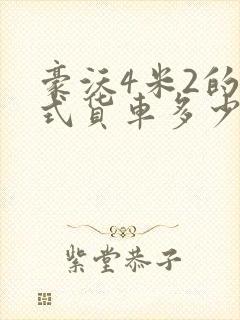 豪沃4米2的
式货车多少
紫堂恭子